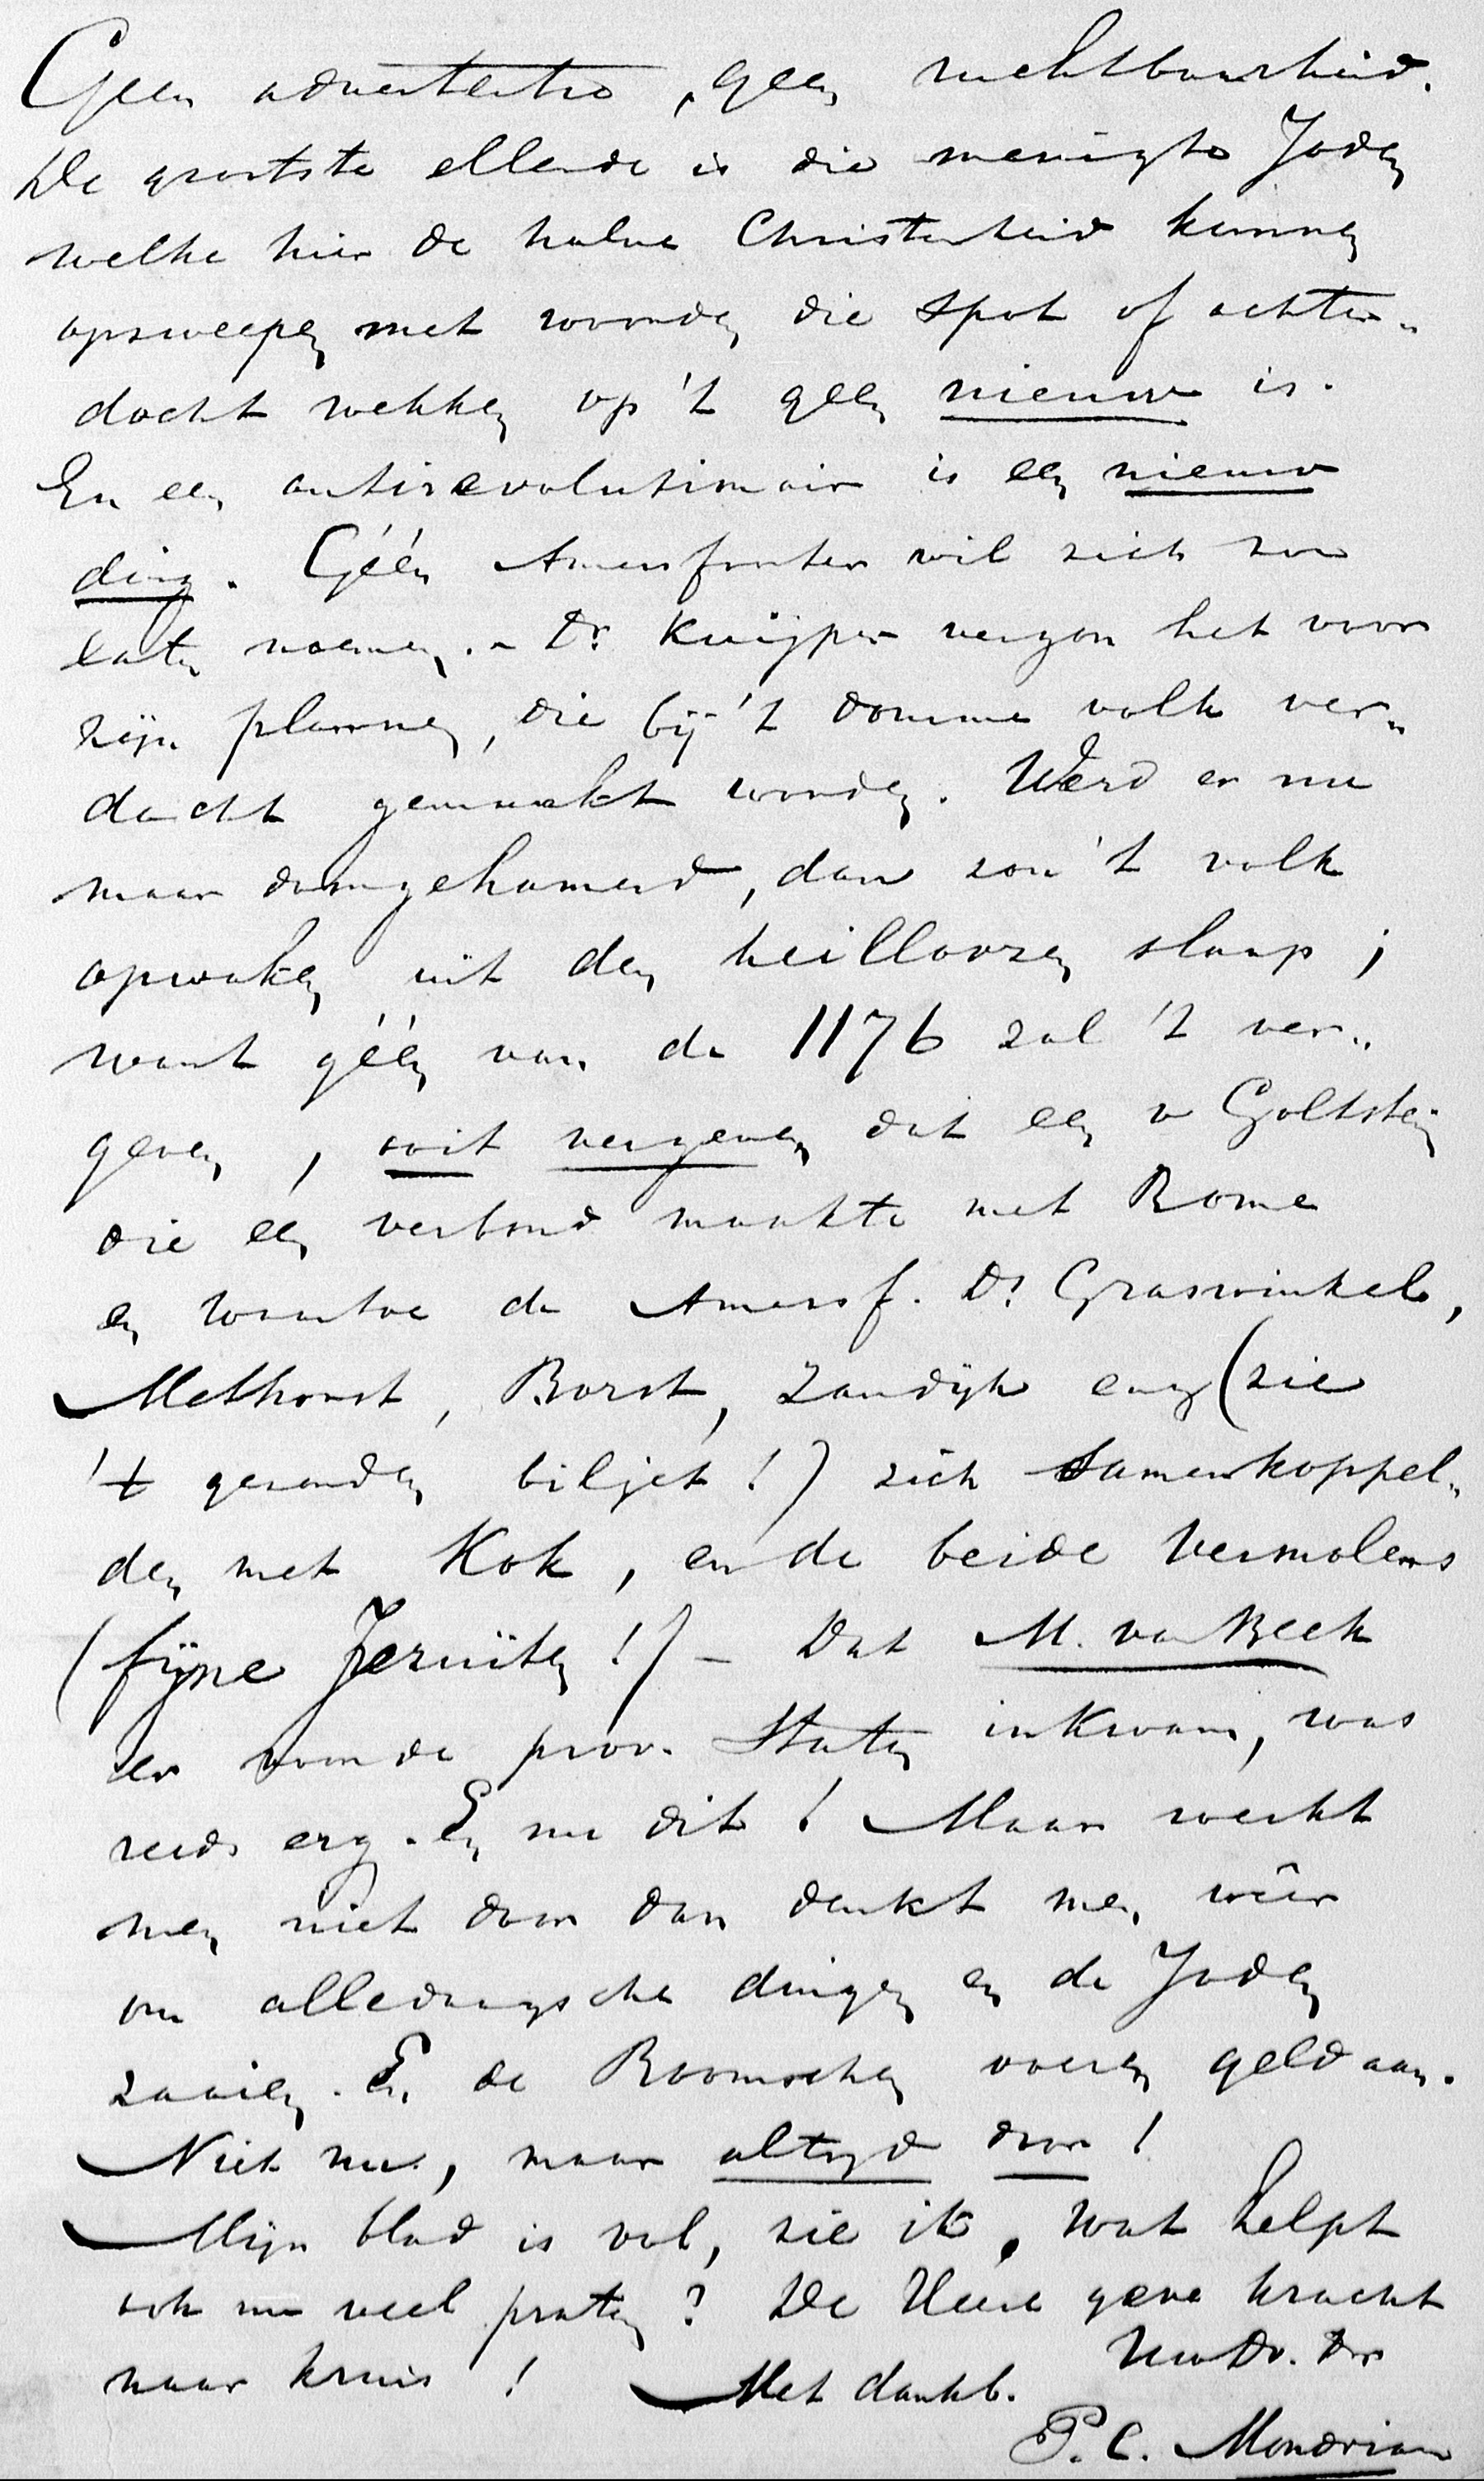 Geen advertentie, geen ruchtbaarheid.
De grootste ellende is die menigte Joden
welke hier de halve Christenheid kunnen
opzweepen met woorden die spot of achter„
docht wekken op 't geen nieuw is.
En een antirevolutionair is een nieuw
ding. Géén Amersfoorter wil zich zoo
laten noemen. – Dr Kuijper verzon het voor
zijn plannen, die bij 't domme volk ver„
dacht gemaakt worden. Werd er nu
maar doorgehamerd, dan zou 't volk
opwaken uit den heilloozen slaap;
want géén van de 1176 zal 't ver„
geven, ooit vergeven dat een v Goltstein
die een verbond maakte met Rome
en waartoe de Amersf. Ds Graswinkel,
Methorst, Borst, Zandijk enz (zie
't gezonden biljet!) zich samenkoppel„
den met Kok, en de beide Vermolens
(fijne Jezuiten!) – Dat M. van Beek
er voor de prov. Staten inkwam, was
reeds erg. En nu dit! Maar werkt
men niet door dan denkt men wêer
om alledaagsche dingen en de Joden
zaaien. En de Roomschen voeren geld aan.
Niet nu, maar altijd door!
Mijn blad is vol, zie ik, wat helpt
ook nu veel praten? De Heere geve kracht
naar kruis! Met dankb. Uw Dv. Dr
P. C. Mondriaan